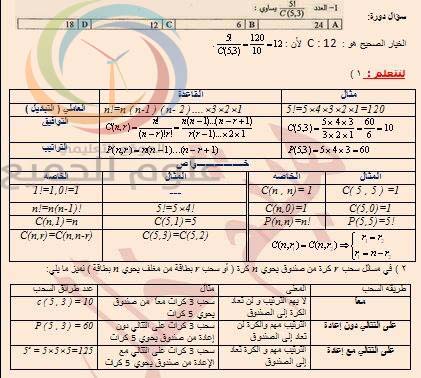 سؤال دورة:
1- العدد 5!/C(5,3) يساوي :
A 24 B 6 C 12 D 18
الخيار الصحيح هو : C : 12 لأن : 5!/C(5,3) = 120/10 = 12
لنتعلم : ( ١
القاعدة مثال
العاملي ( التبديل ) n!=n (n-1) (n- 2) ....×3×2×1 5!=5×4×3×2×1=120
التوافيق C(n,r) = n!/((n-r)!r!) = n(n-1)...(n-r+1)/(r(r-1)...×2×1) C(5,3) = (5×4×3)/(3×2×1) = 60/6 = 10
التراتيب P(n,r) = n(n-1)...(n-r+1) P(5,3) = 5×4×3 = 60
خـــــواص
الخاصه المثال الخاصه المثال
1!=1,0!=1 --- C(n , n) = 1 C( 5 , 5 ) =1
n!=n(n-1)! 5!=5×4! C(n,0)=1 C(5,0)=1
C(n,1)=n C(5,1)=5 P(n,n)=n! P(5,5)=5!
C(n,r)=C(n,n-r) C(5,3)=C(5,2)
٢ ) في مسائل سحب r كرة من صندوق يحوي n كرة ( أو سحب r بطاقة من مغلف يحوي n بطاقة ) نميز ما يلي:
طريقه السحب المعنى مثال عدد طرائق السحب
معاً لا يهم الترتيب و لن تعاد الكرة إلى الصندوق سحب 3 كرات معاً من صندوق يحوي 5 كرات c ( 5 , 3 ) = 10
على التتالي دون إعادة الترتيب مهم والكرة لن تعاد إلى الصندوق سحب 3 كرات على التتالي دون إعادة من صندوق يحوي 5 كرات P ( 5 , 3 ) = 60
على التتالي مع إعادة الترتيب مهم والكرة تعاد إلى الصندوق سحب 3 كرات على التتالي مع الإعادة من صندوق يحوي 5 كرات = 5×5×5=125